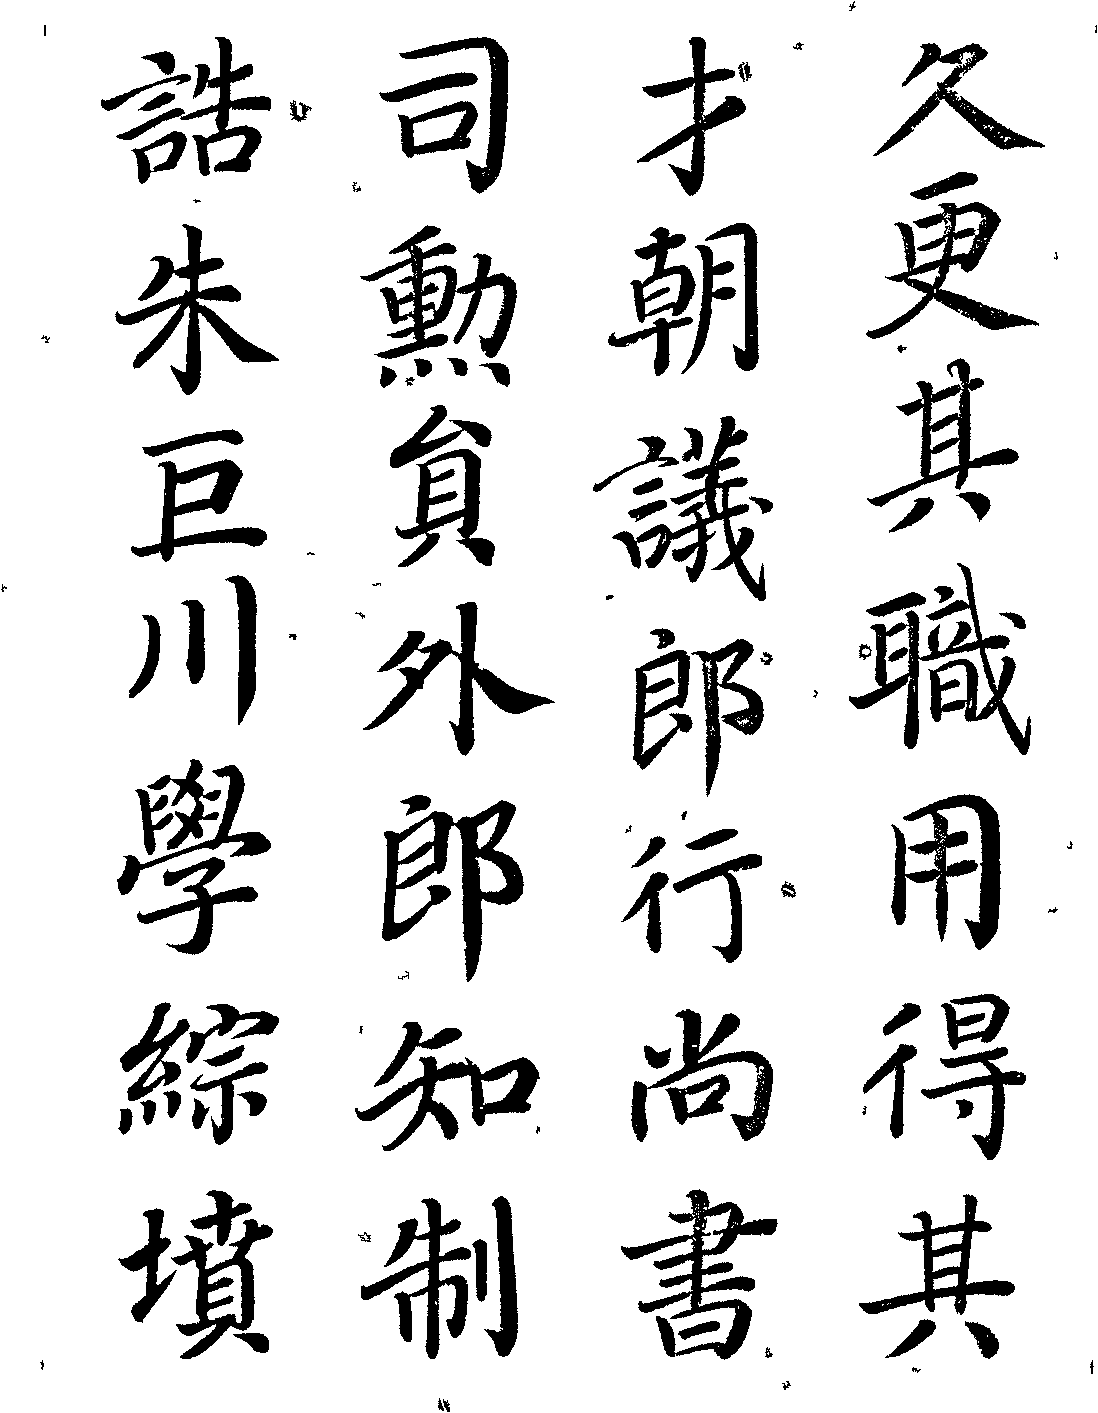 久更其職用得其
才朝議郎行尚書
司勲貟外郎知制
誥朱巨川學綜墳